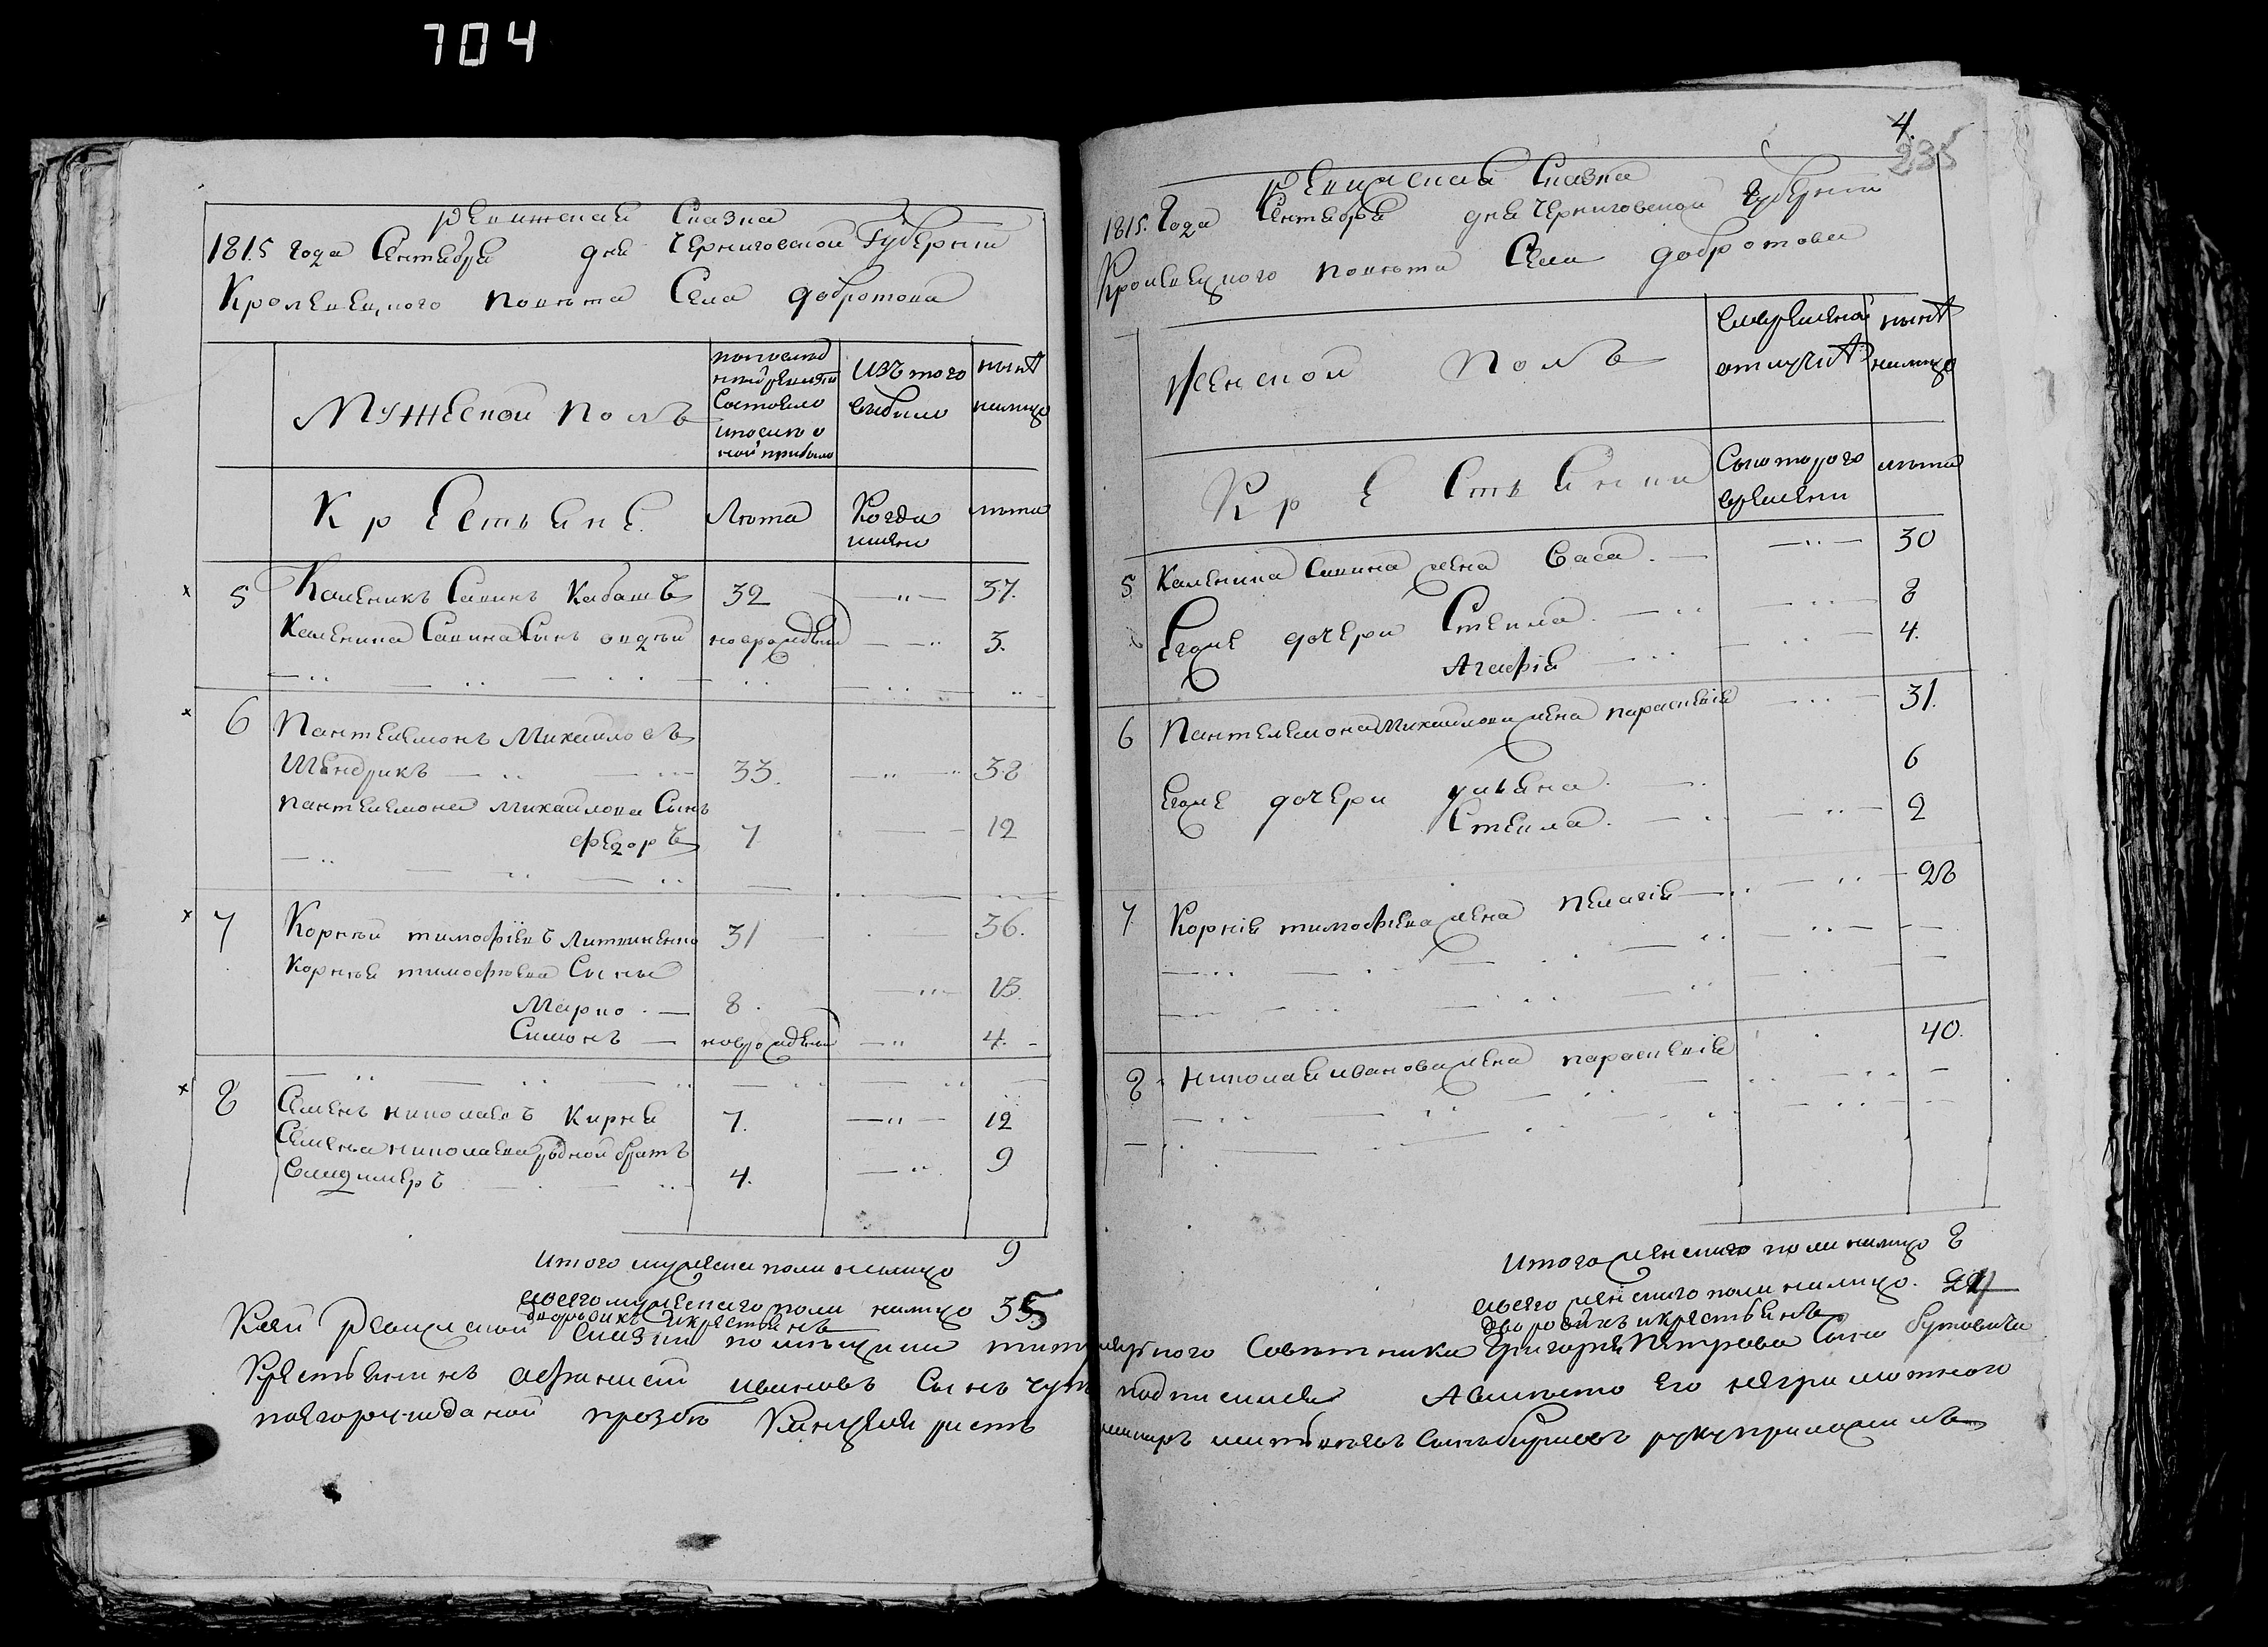 704
Ревижская Сказка
1815 Года Сентебря дня Черниговской Губернии
Кролевецкого повета Села Добротова
Мужеской полъ
по последней ревизии состояло и после оной прибыло
Изъ того выбыло
ныне налицо
Крестьяне
Лета
Когда именно
лета
5 Каленикъ Савинъ Кабашъ 32 37.
Каленика Савина Сынъ новорожденый 3.
6 Пантелемонъ Михайловъ
Шендрикъ 33. 38
Пантелемона Михайлова Сынъ
Федоръ 7 12
7 Корней тимофеевъ Литвиненко 31 36.
Корнея тимофеева Сыны
Марко 8. 13.
Симонъ новорожденый 4.
8 Семенъ николаевъ Кирея 7. 12
Семена николаева родной братъ
Владимеръ 4. 9
Итого мужеска пола налицо 9
всего мужеского пола налицо 35
дворовихъ и крестьянъ
4.
235
Ревижская Сказка
1815. Года Сентебря дня Черниговской Губернии
Кролевецкого повета Села Добротова
Женской полъ
Вовременной отлучке
ныне налицо
Крестьянки
Скоторого времени
лета
5 Каленика Савина жена Васа 30
Егоже дочери Стеха 8
Агафія 4.
6 Пантелемона Михайлова жена параскевія 31.
Егоже дочери ульяна 6
Стеха 2
7 Корнія тимофеева жена Пелагія 28
8 Николая иванова жена параскевія 40.
Итого женского пола налицо 8
всего женского пола налицо.
дворовихъ и крестьянъ
Ксей Ревижской Сказки помещика титулярного Советника Григорія Петрова Сына Бутовича
Крестьянинъ ивановъ Сынъ подписался А вместо его неграмотного
поегорукоданой прозбе Канцеляристъ руку приложилъ